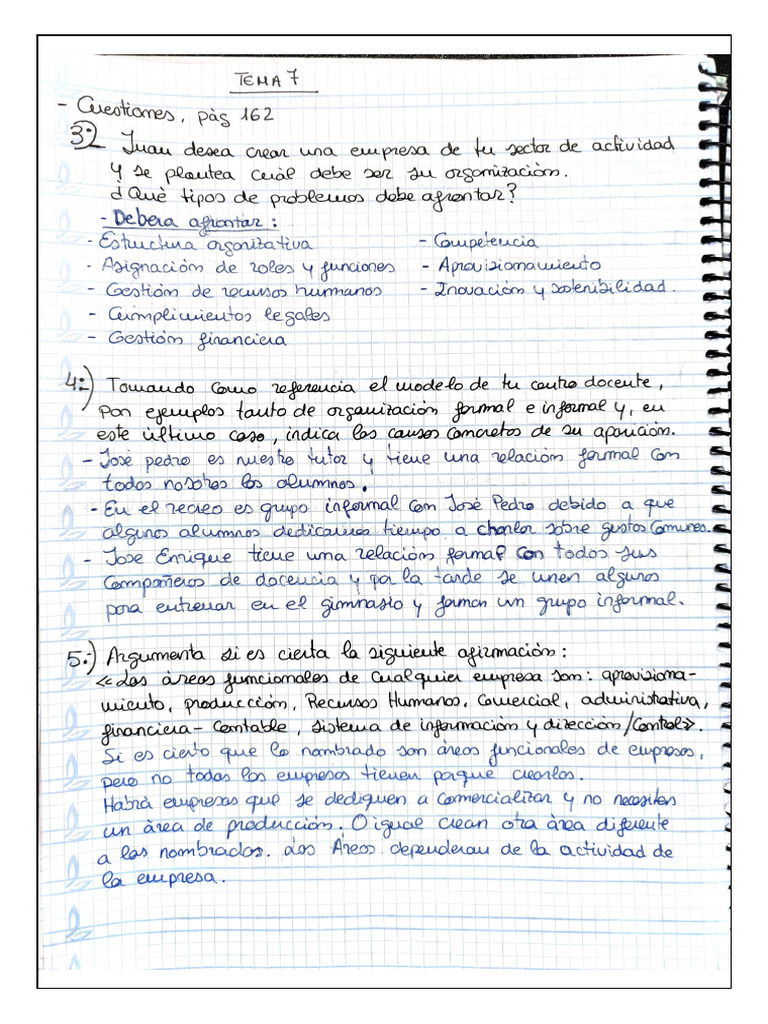 TEMA 7
- Cuestiones, pàg 162
3:) Juan desea crear una empresa de tu sector de actividad
y se plantea cuál debe ser su organización.
¿Què tipos de problemos debe afrontar?
- Debera afrontar:
- Estructura organizativa
- Asignación de roles y funciones
- Gestión de recursos humanos
- Cumplimientos legales
- Gestión financiera
- Competencia
- Aprovisionamiento
- Inovación y sostenibilidad.
4:) Tomando como referencia el modelo de tu centro docente,
Pon ejemplos tanto de organización formal e informal y, en
este último caso, indica las causas concretas de su aparición.
- José pedro es nuestro tutor y tiene una relación formal con
todos nosotros los alumnos.
- En el recreo es grupo informal con José Pedro debido a que
algunos alumnos dedicamos tiempo a charlar sobre gustos comunes.
- Jose Enrique tiene una relación formal con todos sus
compañeros de docencia y por la tarde se unen algunos
para entrenar en el gimnasio y forman un grupo informal.
5:) Argumenta si es cierta la siguiente afirmación:
<<Las áreas funcionales de cualquier empresa son: aprovisiona-
miento, producción, Recursos Humanos, Comercial, administrativa,
financiera- Contable, sistema de información y dirección/Control>>.
Si es cierto que lo nombrado son áreas funcionales de empresas,
pero no todas las empresas tienen porque crearlas.
Habrá empresas que se dediquen a comercializar y no necesiten
un àrea de producción. O igual crean otra àrea diferente
a las nombradas. Las Áreas dependeran de la actividad de
la empresa.